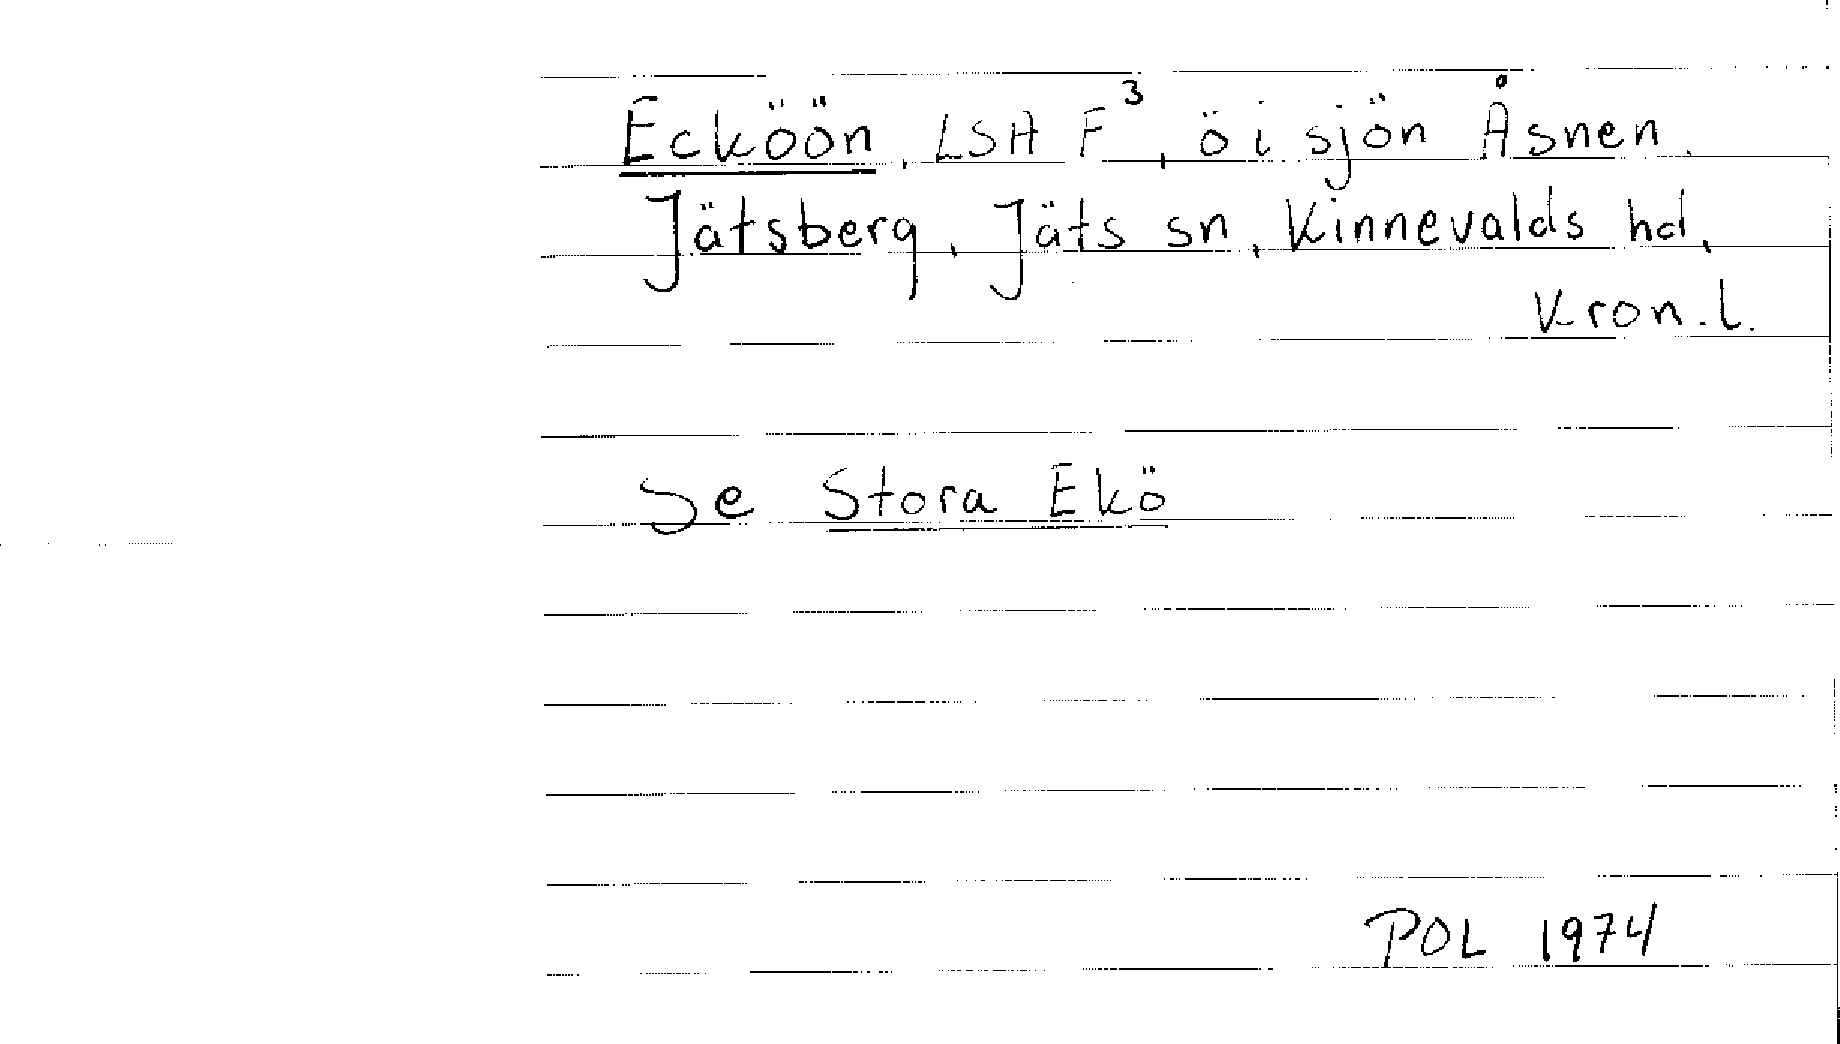 Ecköön, LSA F³, ö i sjön Åsnen,
Jätsberg, Jäts sn, Kinnevalds hd,
Kron. l.
Se Stora Ekö
POL 1974